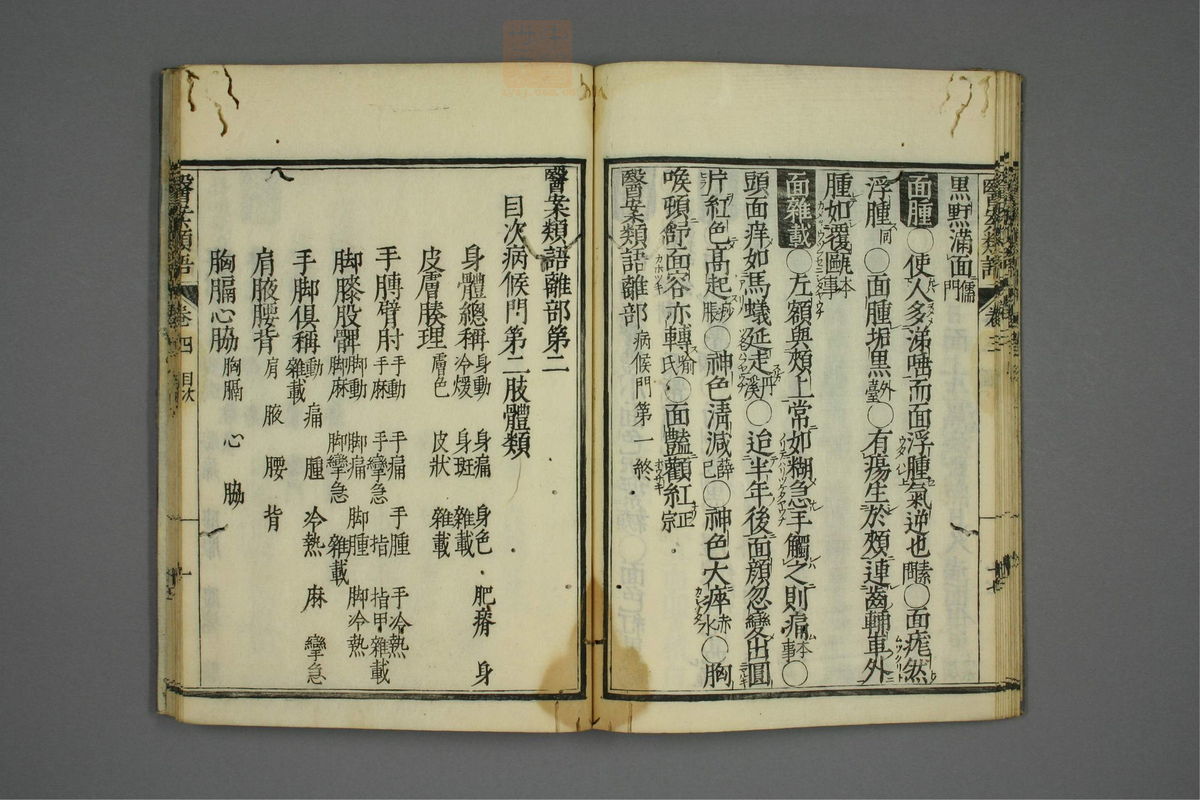 黒䵟滿面儒門
面腫○使人多涕唾而面浮腫氣逆也素問○面㾮然
浮腫同○面腫垢黒外臺○有瘍生於頰連齒輔車外
腫如覆甌本事
面雜載○左額與頰上常如糊急手觸之則痛本事○
頭面痒如馬蟻延走丹溪○迨半年後面顔忽變出圓
片紅色高起痧脹○神色淸減薛己○神色大瘁赤水○胸
喉頓舒面容亦轉喻氏○面豔顴紅正宗
醫案類語離部病候門第一終
醫案類語離部第二
目次病候門第二肢體類
身體總稱 身動 身痛 身色 肥瘠 身冷煖 身斑 雜載
皮膚腠理 膚色 皮狀 雜載
手膊臂肘 手動 手痛 手腫 手冷熱 手麻 手攣急 指 指甲 雜載
脚膝股髀 脚動 脚痛 脚腫 脚冷熱 脚麻 脚攣急 雜載
手脚俱稱 動 痛 腫 冷熱 麻 攣急 雜載
肩腋腰背 肩 腋 腰 背
胸膈心脇 胸膈 心 脇
醫案類語 卷四 目次 一